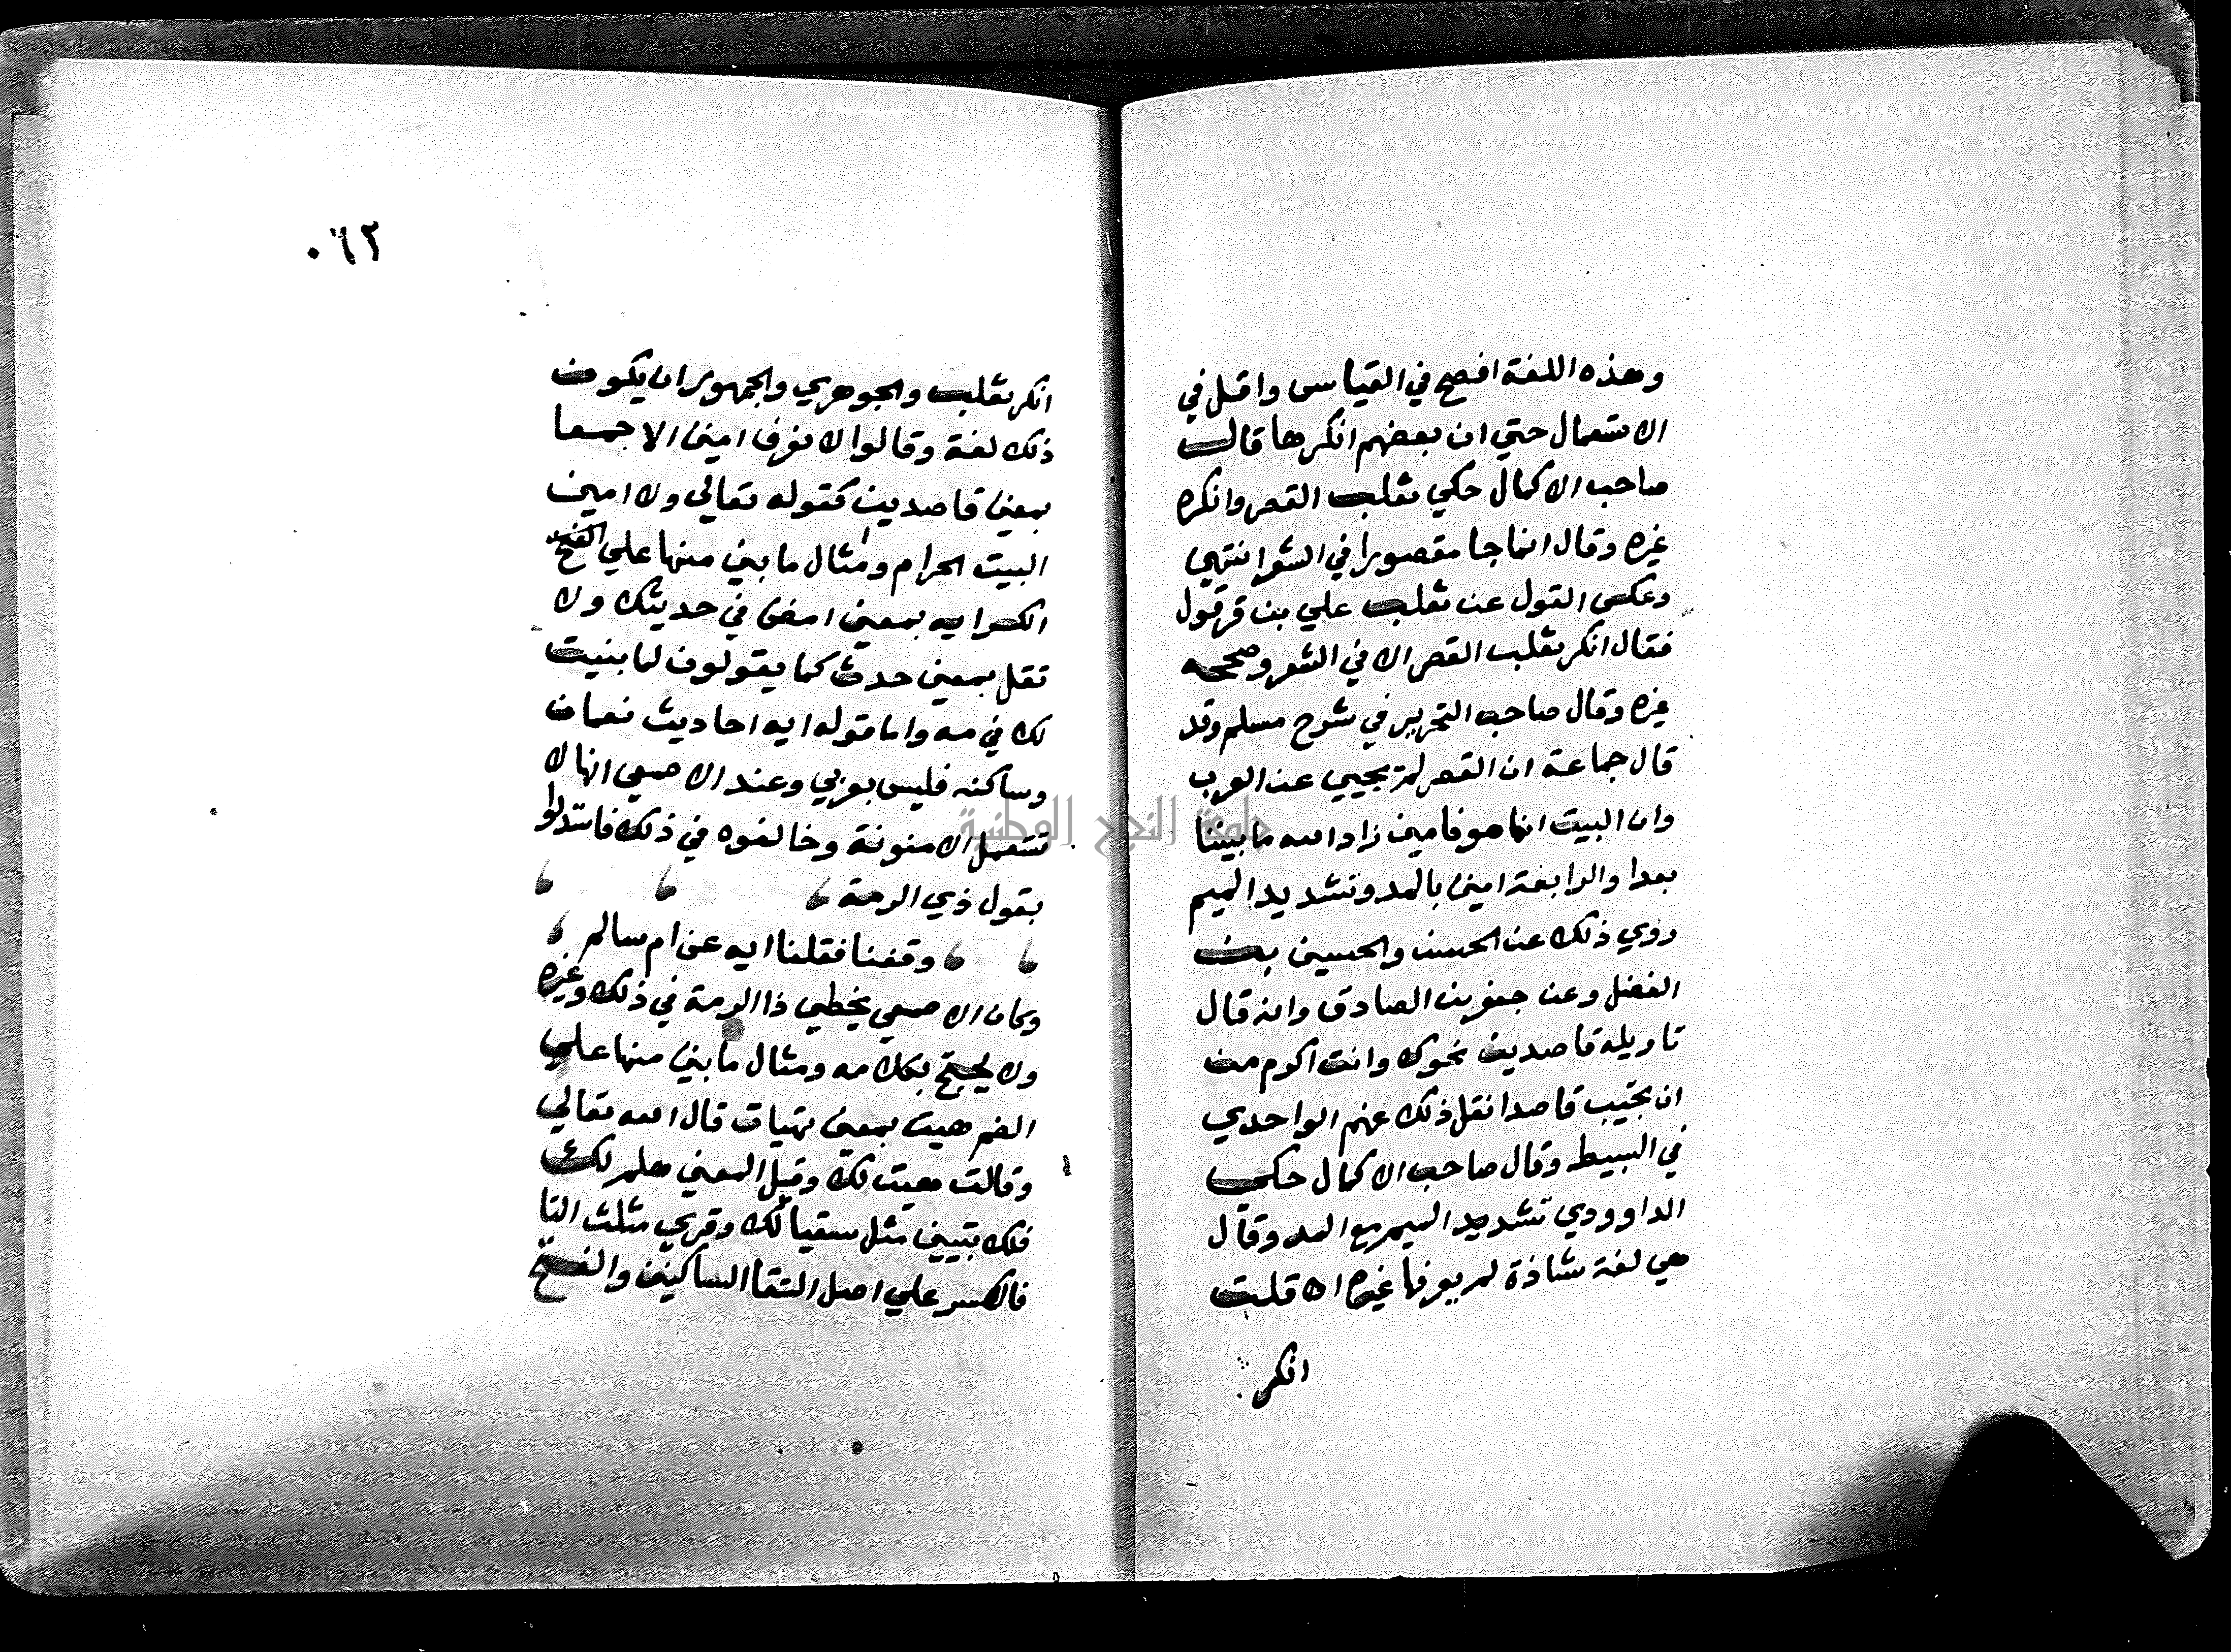 وهذه اللغة افصح في القياس واقل في
الاستعمال حتي ان بعضهم انكرها قال
صاحب الاكمال حكي ثعلب القصر وانكره
غيره وقال انما جا مقصورا في الشعر انتهي
وعكس القول عن ثعلب علي بن قرقول
فقال انكر ثعلب القصر الا في الشعر وصححه
غيره وقال صاحب التحرير في شرح مسلم وقد
قال جماعة ان القصر لم يجيي عن العرب
وان البيت انما هو فامين زاد الله ما بيننا
بعدا والرابعة امين بالمد وتشديد الميم
روي ذلك عن الحسن والحسين بن
الفضل وعن جعفر بن الصادق وانه قال
تاويله قاصدين نحوك وانت اكرم من
ان تخيب قاصدا نقل ذلك عنهم الواحدي
في البسيط وقال صاحب الاكمال حكي
الداوودي تشديد الميم مع المد وقال
هي لغة شاذة لم يعرفها غيره اه قلت
انكر
٠٦٢
انكر ثعلب والجوهري والجمهور ان يكون
ذلك لغة وقالوا لا نعرف امين الا جمعا
بمعني قاصدين كقوله تعالي ولا امين
البيت الحرام ومثال ما بني منها علي الفتح
الكسر ايه بمعني امض في حديثك ولا
تقل بمعني حدث كما يقولون لما بنيت
لك في مه واما قوله ايه احاديث نعمان
وساكنه فليس بعربي وعند الاصمعي انها لا
تستعمل الا منونة وخالفوه في ذلك فاستدلوا
بقول ذي الرمة
وقفنا فقلنا ايه عن ام سالم
وكان الاصمعي يخطي ذا الرمة في ذلك وغيره
ولا يحتج بكلامه ومثال ما بني منها علي
الضم هيت بمعني تهيات قال الله تعالي
وقالت هيت لك وقيل المعني هلم لك
فلك تبيين مثل سقيا لك وقري مثلث التا
فالكسر علي اصل التقا الساكنين والفتح
جامعة النجاح الوطنية